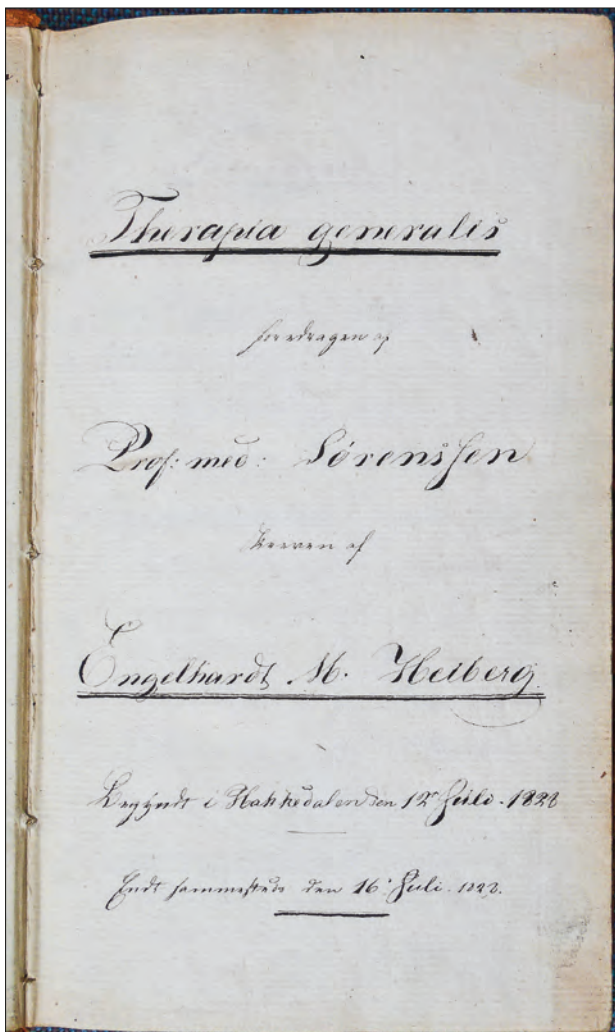 Therapia generalis
foredragen af
Prof: med: Sørenssen
skreven af
Engelhardt M. Heiberg
Begyndt i Hakkedalen den 12 Juli. 1828
Endt sammesteds den 16. Juli. 1828.